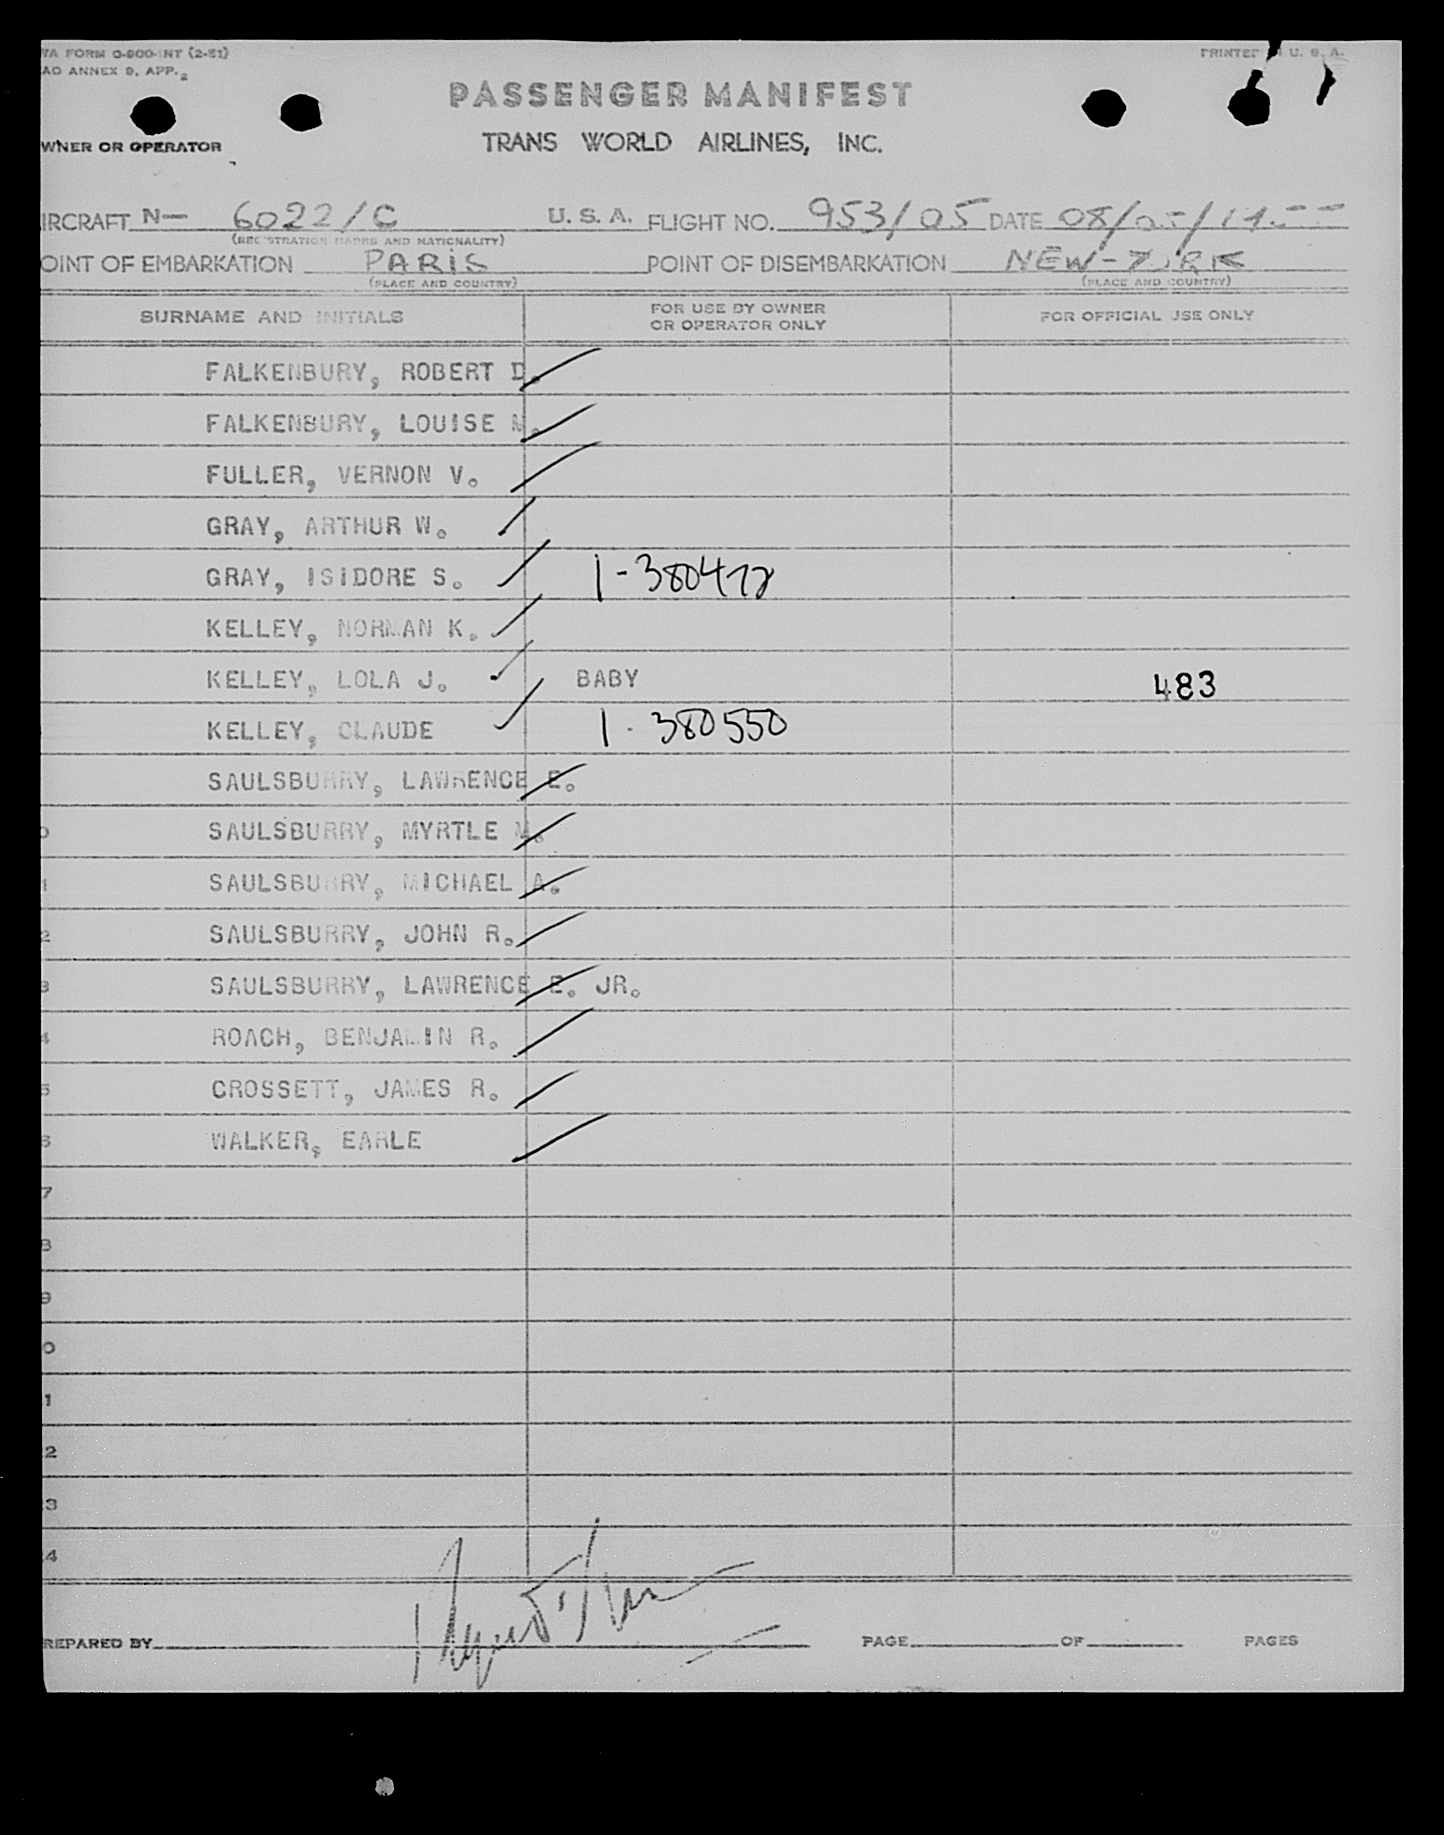 WA FORM O-800-INT (2-51)
PRINTED IN U. S. A.
AO ANNEX 9, APP. 2
PASSENGER MANIFEST
WNER OR OPERATOR
TRANS WORLD AIRLINES, INC.
IRCRAFT N— 6022/C U. S. A. FLIGHT NO. 953/05 DATE 08/05/
(REGISTRATION MARKS AND NATIONALITY)
OINT OF EMBARKATION PARIS POINT OF DISEMBARKATION NEW-YORK
(PLACE AND COUNTRY) (PLACE AND COUNTRY)
SURNAME AND INITIALS FOR USE BY OWNER OR OPERATOR ONLY FOR OFFICIAL USE ONLY
FALKENBURY, ROBERT D.
FALKENBURY, LOUISE M.
FULLER, VERNON V.
GRAY, ARTHUR W.
GRAY, ISIDORE S. 1-380472
KELLEY, NORMAN K.
KELLEY, LOLA J. BABY 483
KELLEY, CLAUDE 1-380550
SAULSBURRY, LAWRENCE E.
0 SAULSBURRY, MYRTLE M.
1 SAULSBURRY, MICHAEL A.
2 SAULSBURRY, JOHN R.
3 SAULSBURRY, LAWRENCE E. JR.
4 ROACH, BENJAMIN R.
5 CROSSETT, JAMES R.
6 WALKER, EARLE
7
8
9
0
1
2
3
4
REPARED BY PAGE OF PAGES